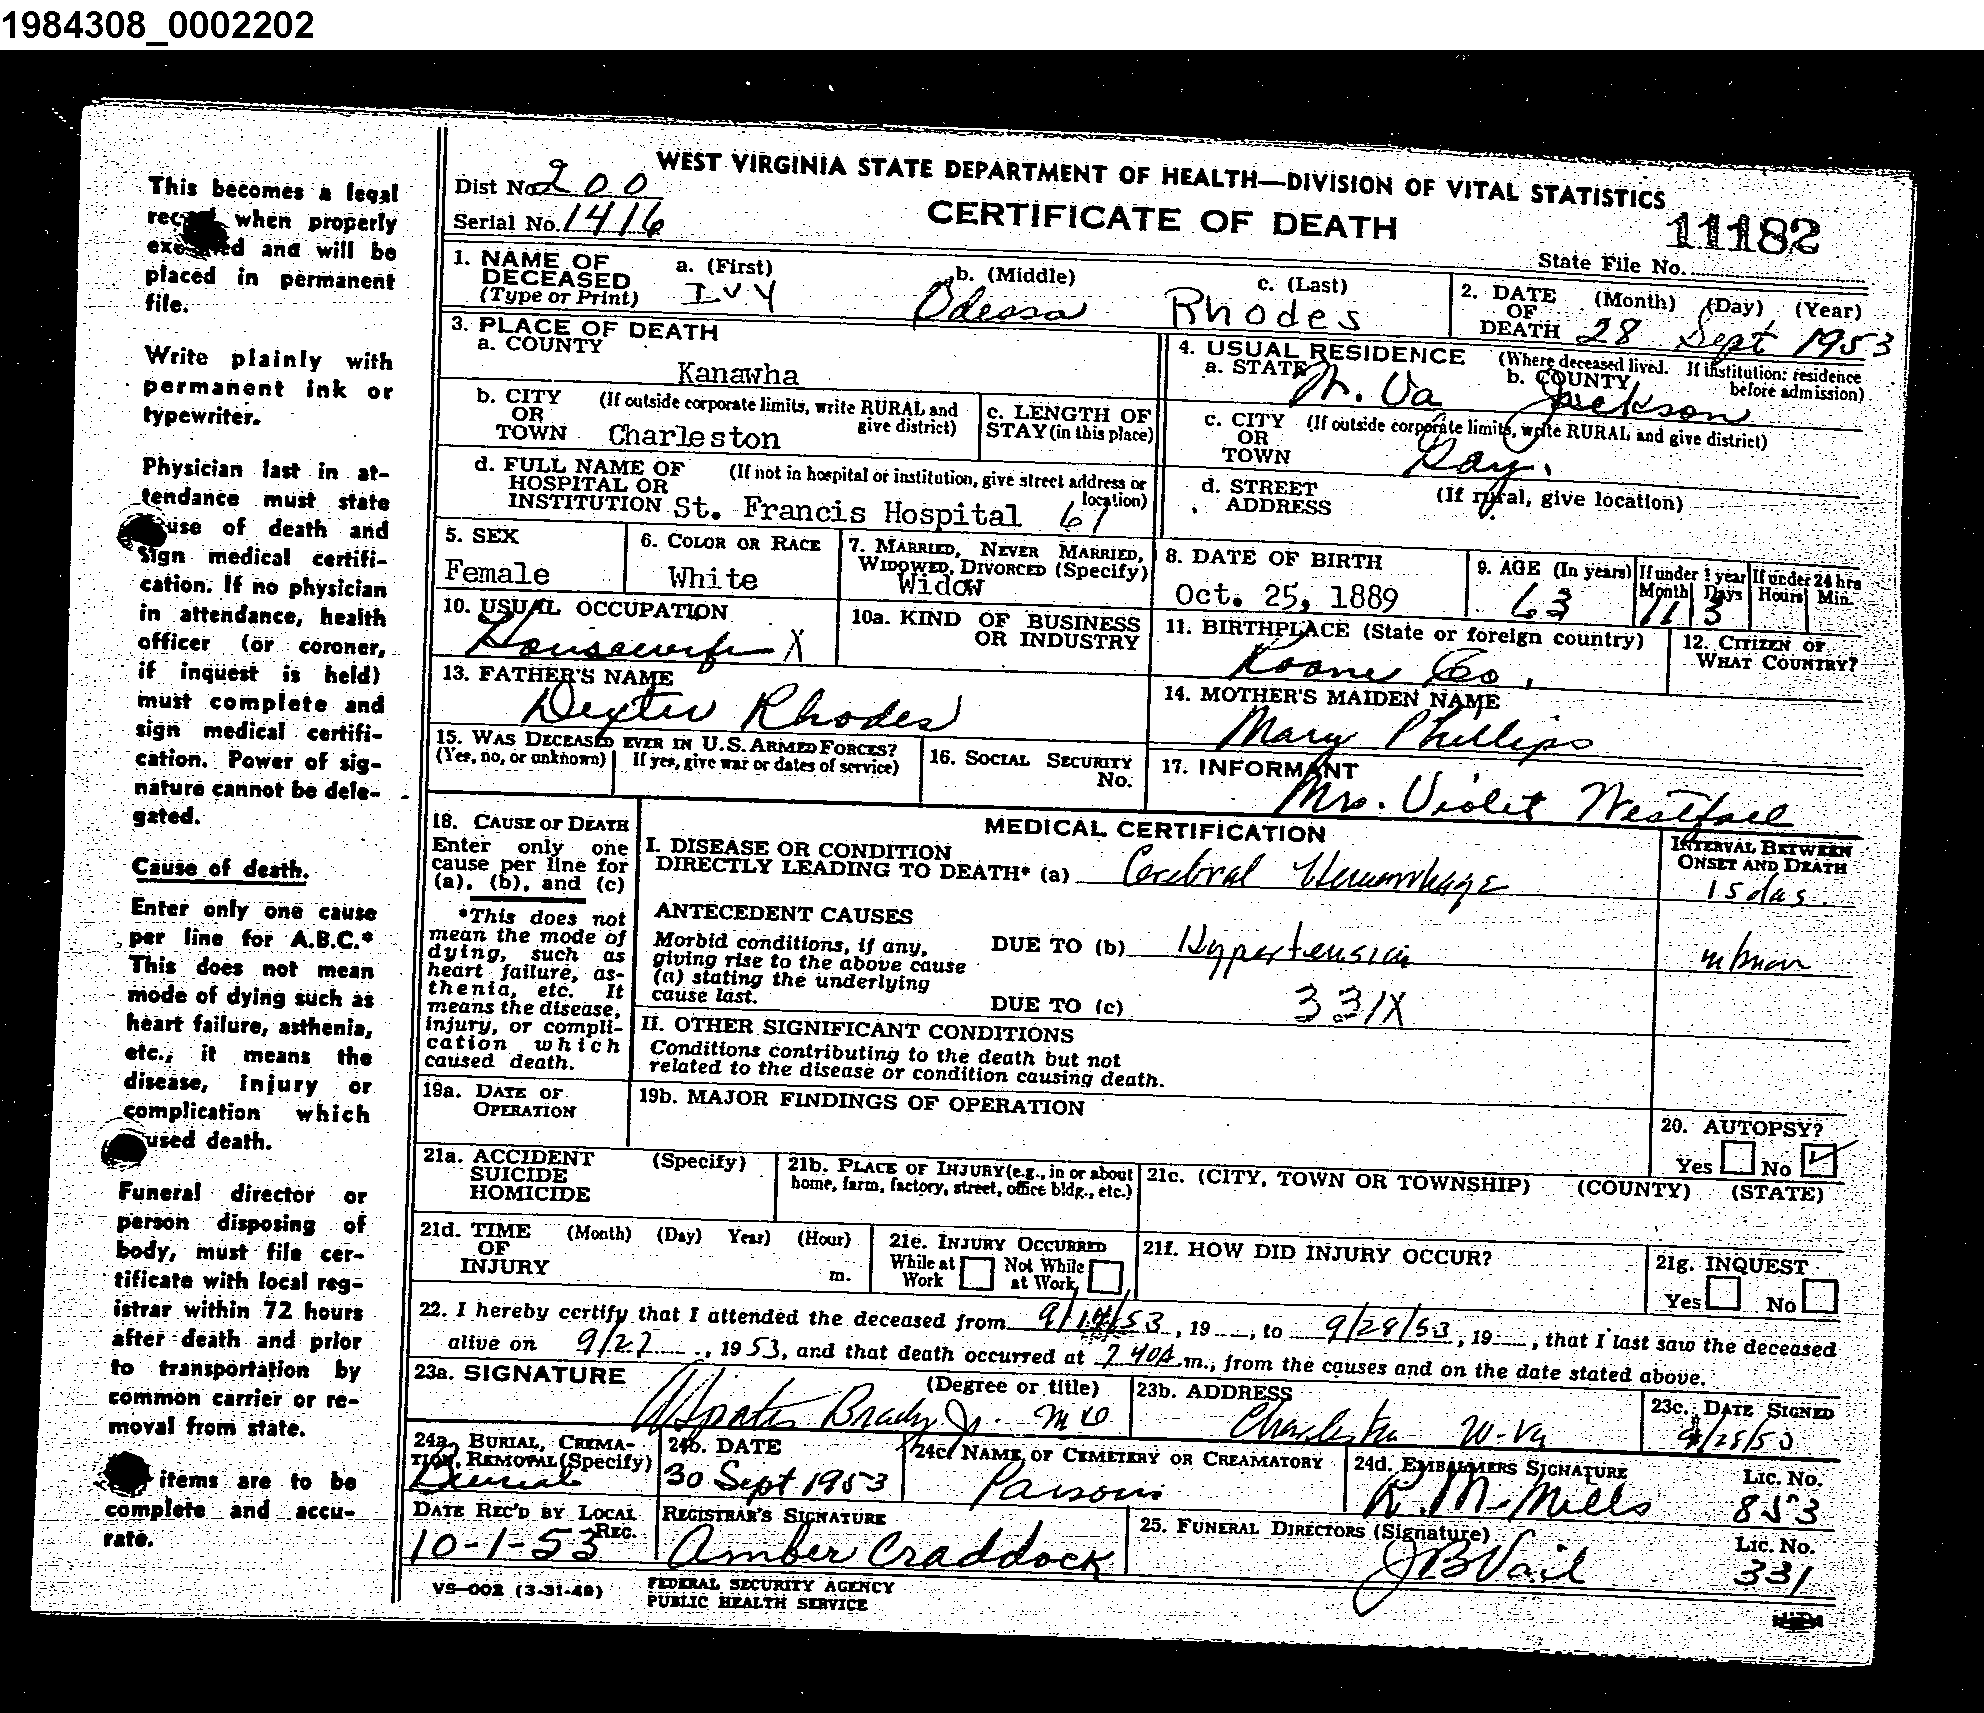 1984308_0002202
This becomes a legal
when properly
and will be
placed in permanent
file.
Write plainly with
permanent ink or
typewriter.
Physician last in at-
tendance must state
use of death and
sign medical certifi-
cation. If no physician
in attendance, health
officer (or coroner,
if inquest is held)
must complete and
sign medical certifi-
cation. Power of sig-
nature cannot be dele-
gated.
Cause of death.
Enter only one cause
per line for A.B.C.*
This does not mean
mode of dying such as
heart failure, asthenia,
etc., it means the
disease, injury or
complication which
used death.
Funeral director or
person disposing of
body, must file cer-
tificate with local reg-
istrar within 72 hours
after death and prior
to transportation by
common carrier or re-
moval from state.
items are to be
complete and accu-
rate.
WEST VIRGINIA STATE DEPARTMENT OF HEALTH—DIVISION OF VITAL STATISTICS
Dist No. 200
Serial No. 1416
CERTIFICATE OF DEATH
11182
State File No.
1. NAME OF DECEASED (Type or Print) a. (First) Ivy b. (Middle) Odessa c. (Last) Rhodes
2. DATE OF DEATH (Month) (Day) (Year) 28 Sept 1953
3. PLACE OF DEATH
a. COUNTY Kanawha
4. USUAL RESIDENCE (Where deceased lived. If institution: residence before admission)
a. STATE W. Va b. COUNTY Jackson
b. CITY OR TOWN (If outside corporate limits, write RURAL and give district) Charleston
c. LENGTH OF STAY (in this place)
c. CITY OR TOWN (If outside corporate limits, write RURAL and give district)
d. FULL NAME OF HOSPITAL OR INSTITUTION (If not in hospital or institution, give street address or location) St. Francis Hospital 61
d. STREET ADDRESS (If rural, give location)
5. SEX Female
6. COLOR OR RACE White
7. MARRIED, NEVER MARRIED, WIDOWED, DIVORCED (Specify) Widow
8. DATE OF BIRTH Oct. 25, 1889
9. AGE (In years) 63 If under 1 year Month 11 Days 3 If under 24 hrs Hours Min.
10. USUAL OCCUPATION Housewife X
10a. KIND OF BUSINESS OR INDUSTRY
11. BIRTHPLACE (State or foreign country) Roane Co.
12. CITIZEN OF WHAT COUNTRY?
13. FATHER'S NAME Dexter Rhodes
14. MOTHER'S MAIDEN NAME Mary Phillips
15. WAS DECEASED EVER IN U.S. ARMED FORCES?
(Yes, no, or unknown) If yes, give war or dates of service)
16. SOCIAL SECURITY No.
17. INFORMANT Mrs. Violet Westfall
18. CAUSE OF DEATH
Enter only one
cause per line for
(a), (b), and (c)
*This does not
mean the mode of
dying, such as
heart failure, as-
thenia, etc. It
means the disease,
injury, or compli-
cation which
caused death.
MEDICAL CERTIFICATION
INTERVAL BETWEEN ONSET AND DEATH
I. DISEASE OR CONDITION
DIRECTLY LEADING TO DEATH* (a) Cerebral Hemorrhage 15 das.
ANTECEDENT CAUSES
Morbid conditions, if any,
giving rise to the above cause
(a) stating the underlying
cause last.
DUE TO (b) Hypertension
DUE TO (c) 331X
II. OTHER SIGNIFICANT CONDITIONS
Conditions contributing to the death but not
related to the disease or condition causing death.
19a. DATE OF OPERATION
19b. MAJOR FINDINGS OF OPERATION
20. AUTOPSY?
Yes No ✓
21a. ACCIDENT SUICIDE HOMICIDE (Specify)
21b. PLACE OF INJURY (e.g., in or about home, farm, factory, street, office bldg., etc.)
21c. (CITY, TOWN OR TOWNSHIP) (COUNTY) (STATE)
21d. TIME OF INJURY (Month) (Day) Year) (Hour) m.
21e. INJURY OCCURRED
While at Work Not While at Work
21f. HOW DID INJURY OCCUR?
21g. INQUEST
Yes No
22. I hereby certify that I attended the deceased from 9/14/53, 19__, to 9/28/53, 19__, that I last saw the deceased
alive on 9/27, 1953, and that death occurred at 7 40A m., from the causes and on the date stated above.
23a. SIGNATURE (Degree or title) Brady Jr. MD
23b. ADDRESS Charleston W-Va
23c. DATE SIGNED 9/28/53
24a. BURIAL, CREMATION, REMOVAL (Specify) Burial
24b. DATE 30 Sept 1953
24c. NAME OF CEMETERY OR CREAMATORY Parsons
24d. EMBALMERS SIGNATURE R. M. Mills Lic. No. 853
DATE REC'D BY LOCAL REG. 10-1-53
REGISTRAR'S SIGNATURE Amber Craddock
25. FUNERAL DIRECTORS (Signature) J B Vail Lic. No. 331
VS—002 (3-31-49)
FEDERAL SECURITY AGENCY
PUBLIC HEALTH SERVICE